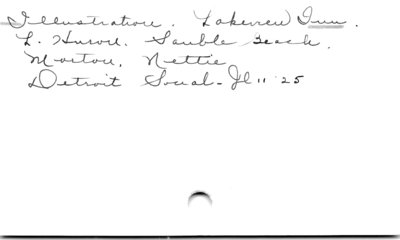 Illustration. Lakeview Inn.
L. Huron. Sauble Beach.
Morton, Nettie
Detroit Social - Jl 11 '25